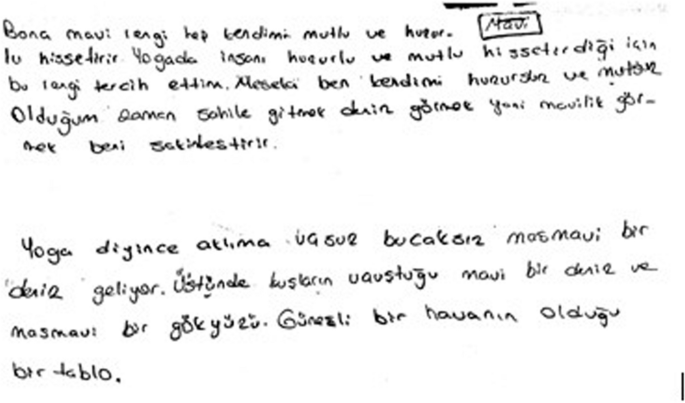 Mavi
Bana mavi rengi hep kendimi mutlu ve huzur-
lu hissetirir. Yogada insanı huzurlu ve mutlu hissetirdiği için
bu rengi tercih ettim. Mesela ben kendimi huzursuz ve mutsuz
Olduğum zaman sahile gitmek deniz görmek yani mavilik gör-
mek beni sakinleştirir.
Yoga diyince aklıma uçsuz bucaksız masmavi bir
deniz geliyor. Üstünde kuşların uçuştuğu mavi bir deniz ve
masmavi bir gökyüzü. Güneşli bir havanın olduğu
bir tablo.